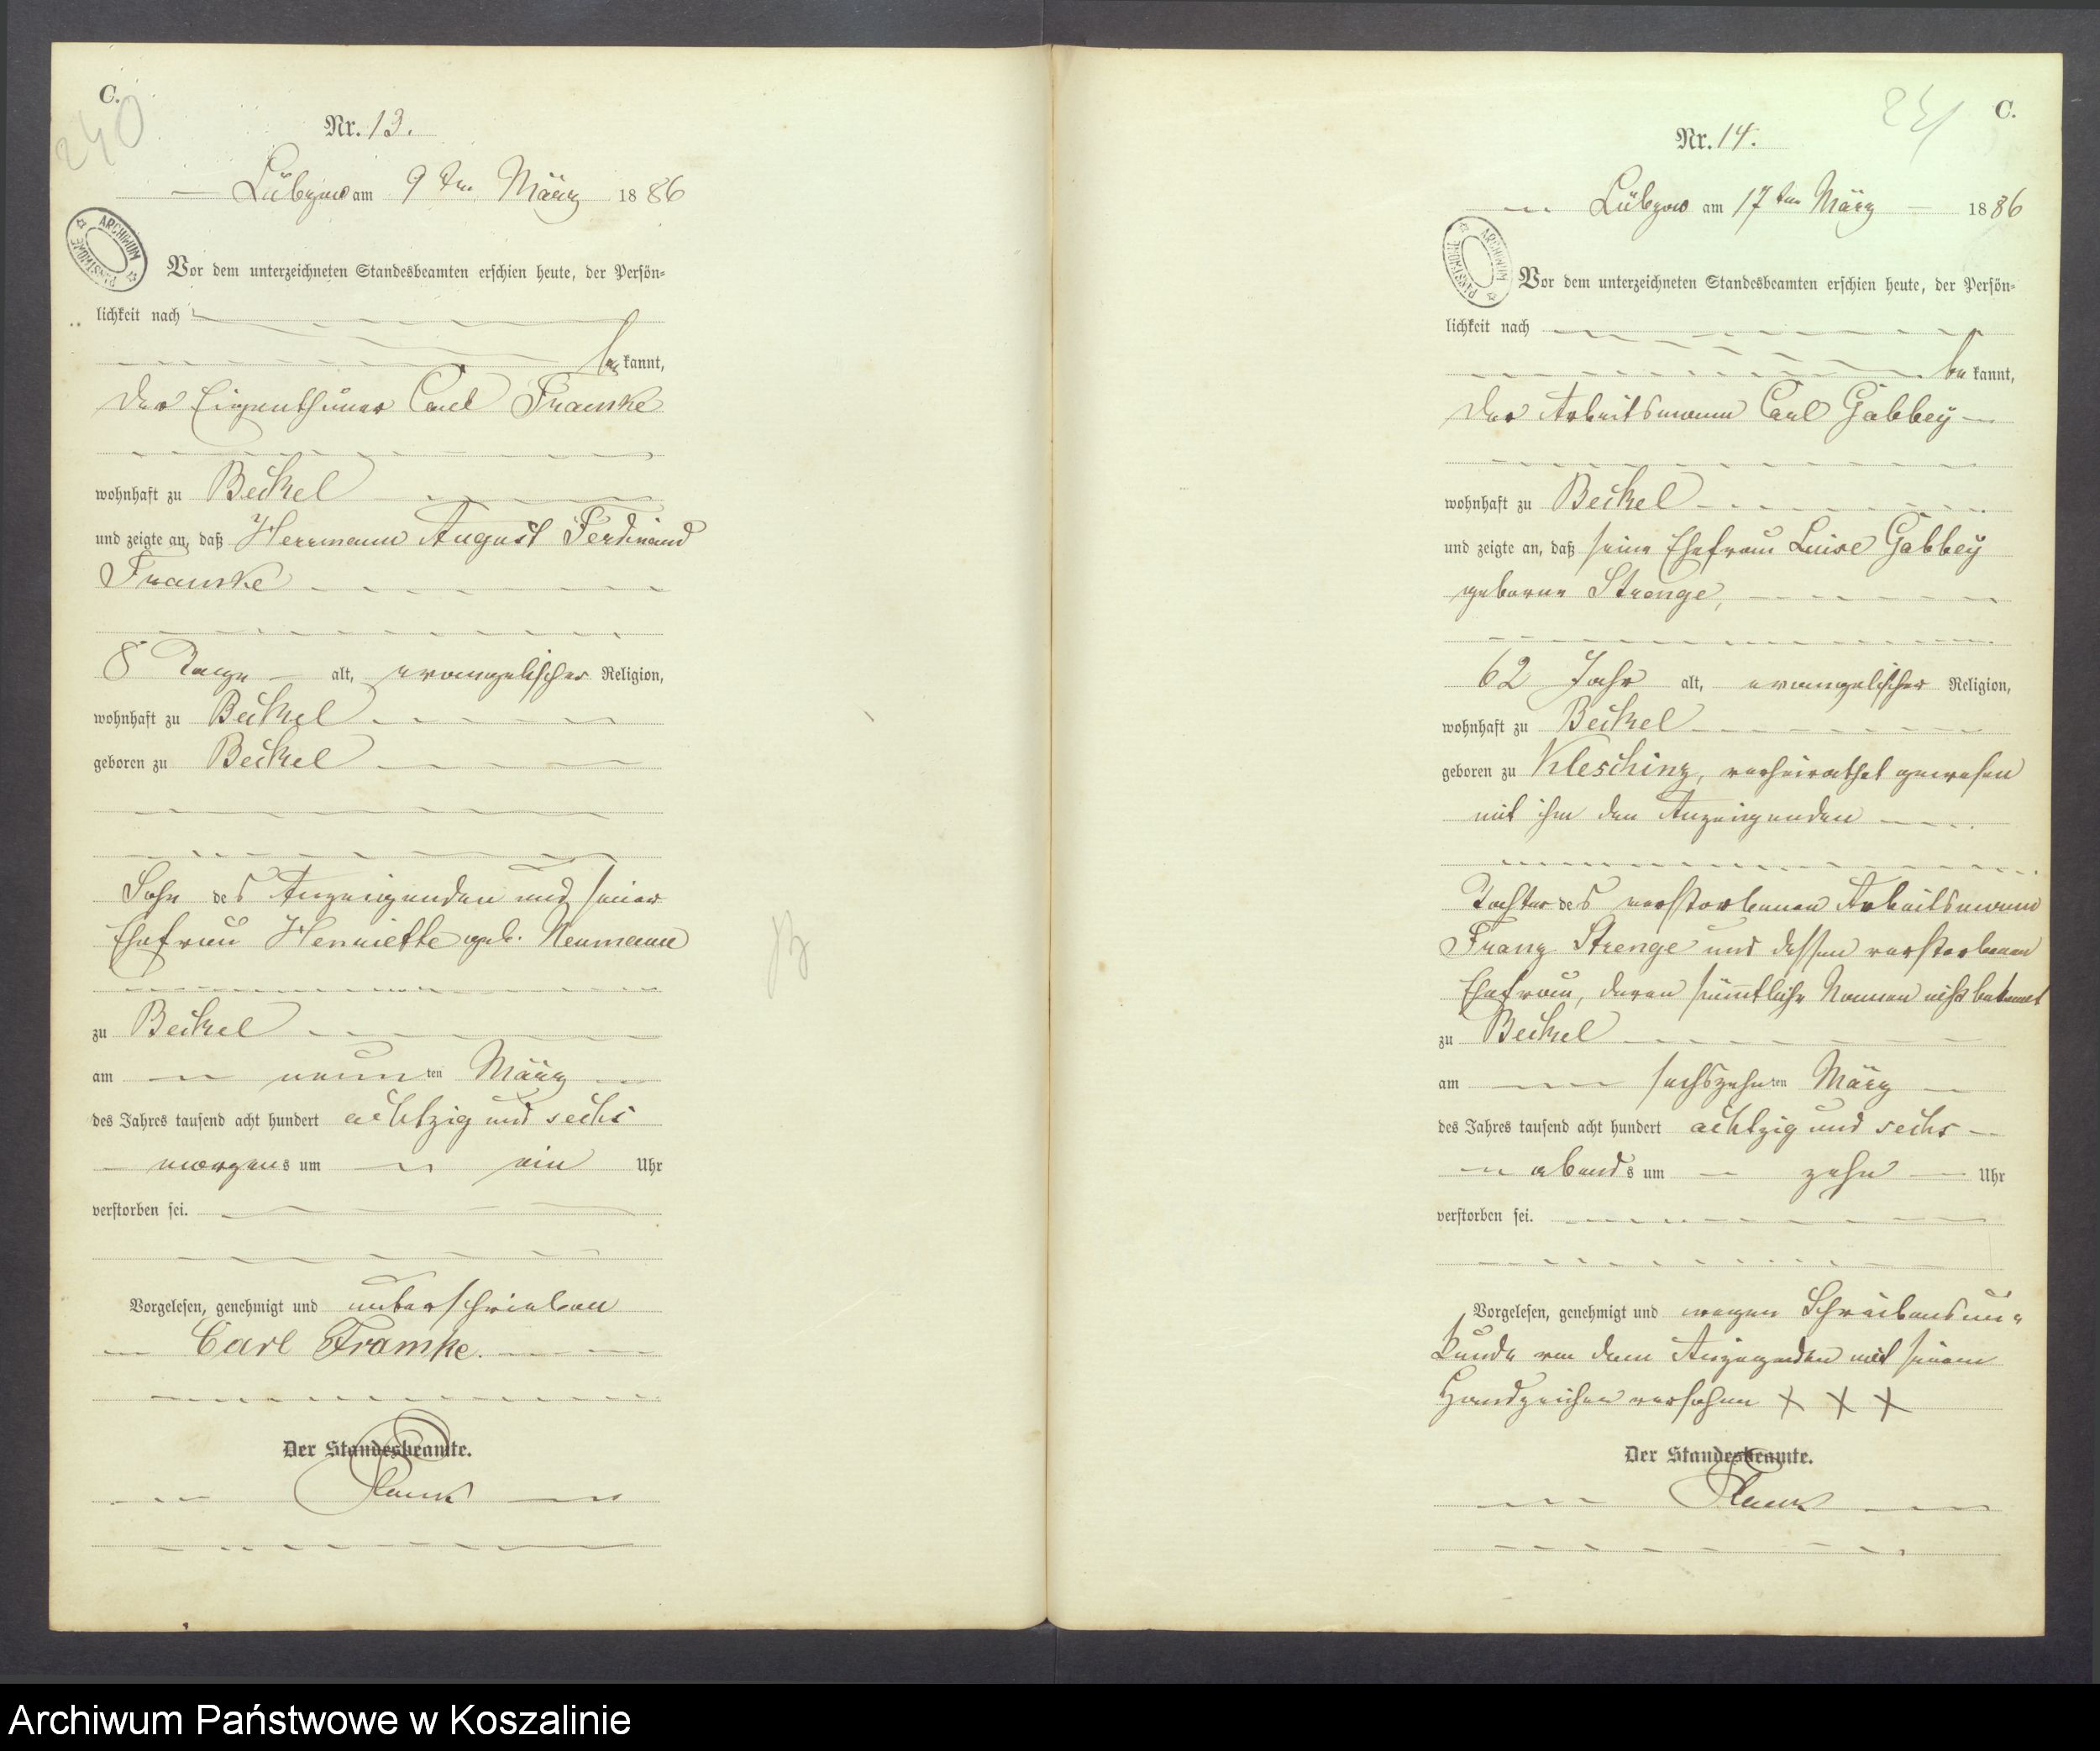 C.
240
Nr. 13.
Lübzow am 9 ten März 1886
ARCHIWUM PAŃSTWOWE
Vor dem unterzeichneten Standesbeamten erschien heute, der Persön-
lichkeit nach
be kannt,
der Eigenthümer Carl Framke
wohnhaft zu Beckel
und zeigte an, daß Herrmann August Ferdinand
Framke
8 Tage alt, evangelischer Religion,
wohnhaft zu Beckel
geboren zu Beckel
Sohn des Anzeigenden und seiner
Ehefrau Henriette geb. Neumann
zu Beckel
am neunten März
des Jahres tausend acht hundert achtzig und sechs
morgens um ein Uhr
verstorben sei.
Vorgelesen, genehmigt und unterschrieben
Carl Framke.
Der Standesbeamte.
C.
241
Nr. 14.
Lübzow am 17 ten März 1886
ARCHIWUM PAŃSTWOWE
Vor dem unterzeichneten Standesbeamten erschien heute, der Persön-
lichkeit nach
be kannt,
der Arbeitsmann Carl Gabbey
wohnhaft zu Beckel
und zeigte an, daß seine Ehefrau Luise Gabbey
geborne Strenge,
62 Jahr alt, evangelischer Religion,
wohnhaft zu Beckel
geboren zu Kleschinz, verheirathet gewesen
mit ihm den Anzeigenden
Tochter des verstorbenen Arbeitsmann
Franz Strenge und dessen verstorbenen
Ehefrau, deren sämmtliche Namen nicht bekannt
zu Beckel
am sechszehnten März
des Jahres tausend acht hundert achtzig und sechs
abends um zehn Uhr
verstorben sei.
Vorgelesen, genehmigt und wegen Schreibensun-
kunde von dem Anzeigenden mit seinem
Handzeichen versehen X X X
Der Standesbeamte.
Archiwum Państwowe w Koszalinie